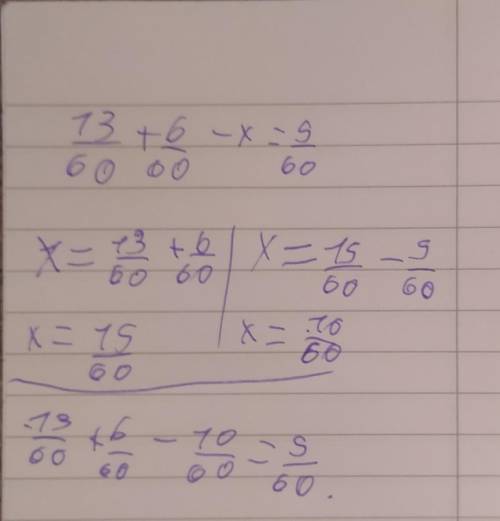 13/60 + 6/60 - x = 9/60
x = 13/60 + 6/60 | x = 19/60 - 9/60
x = 19/60 | x = 10/60
13/60 + 6/60 - 10/60 = 9/60.